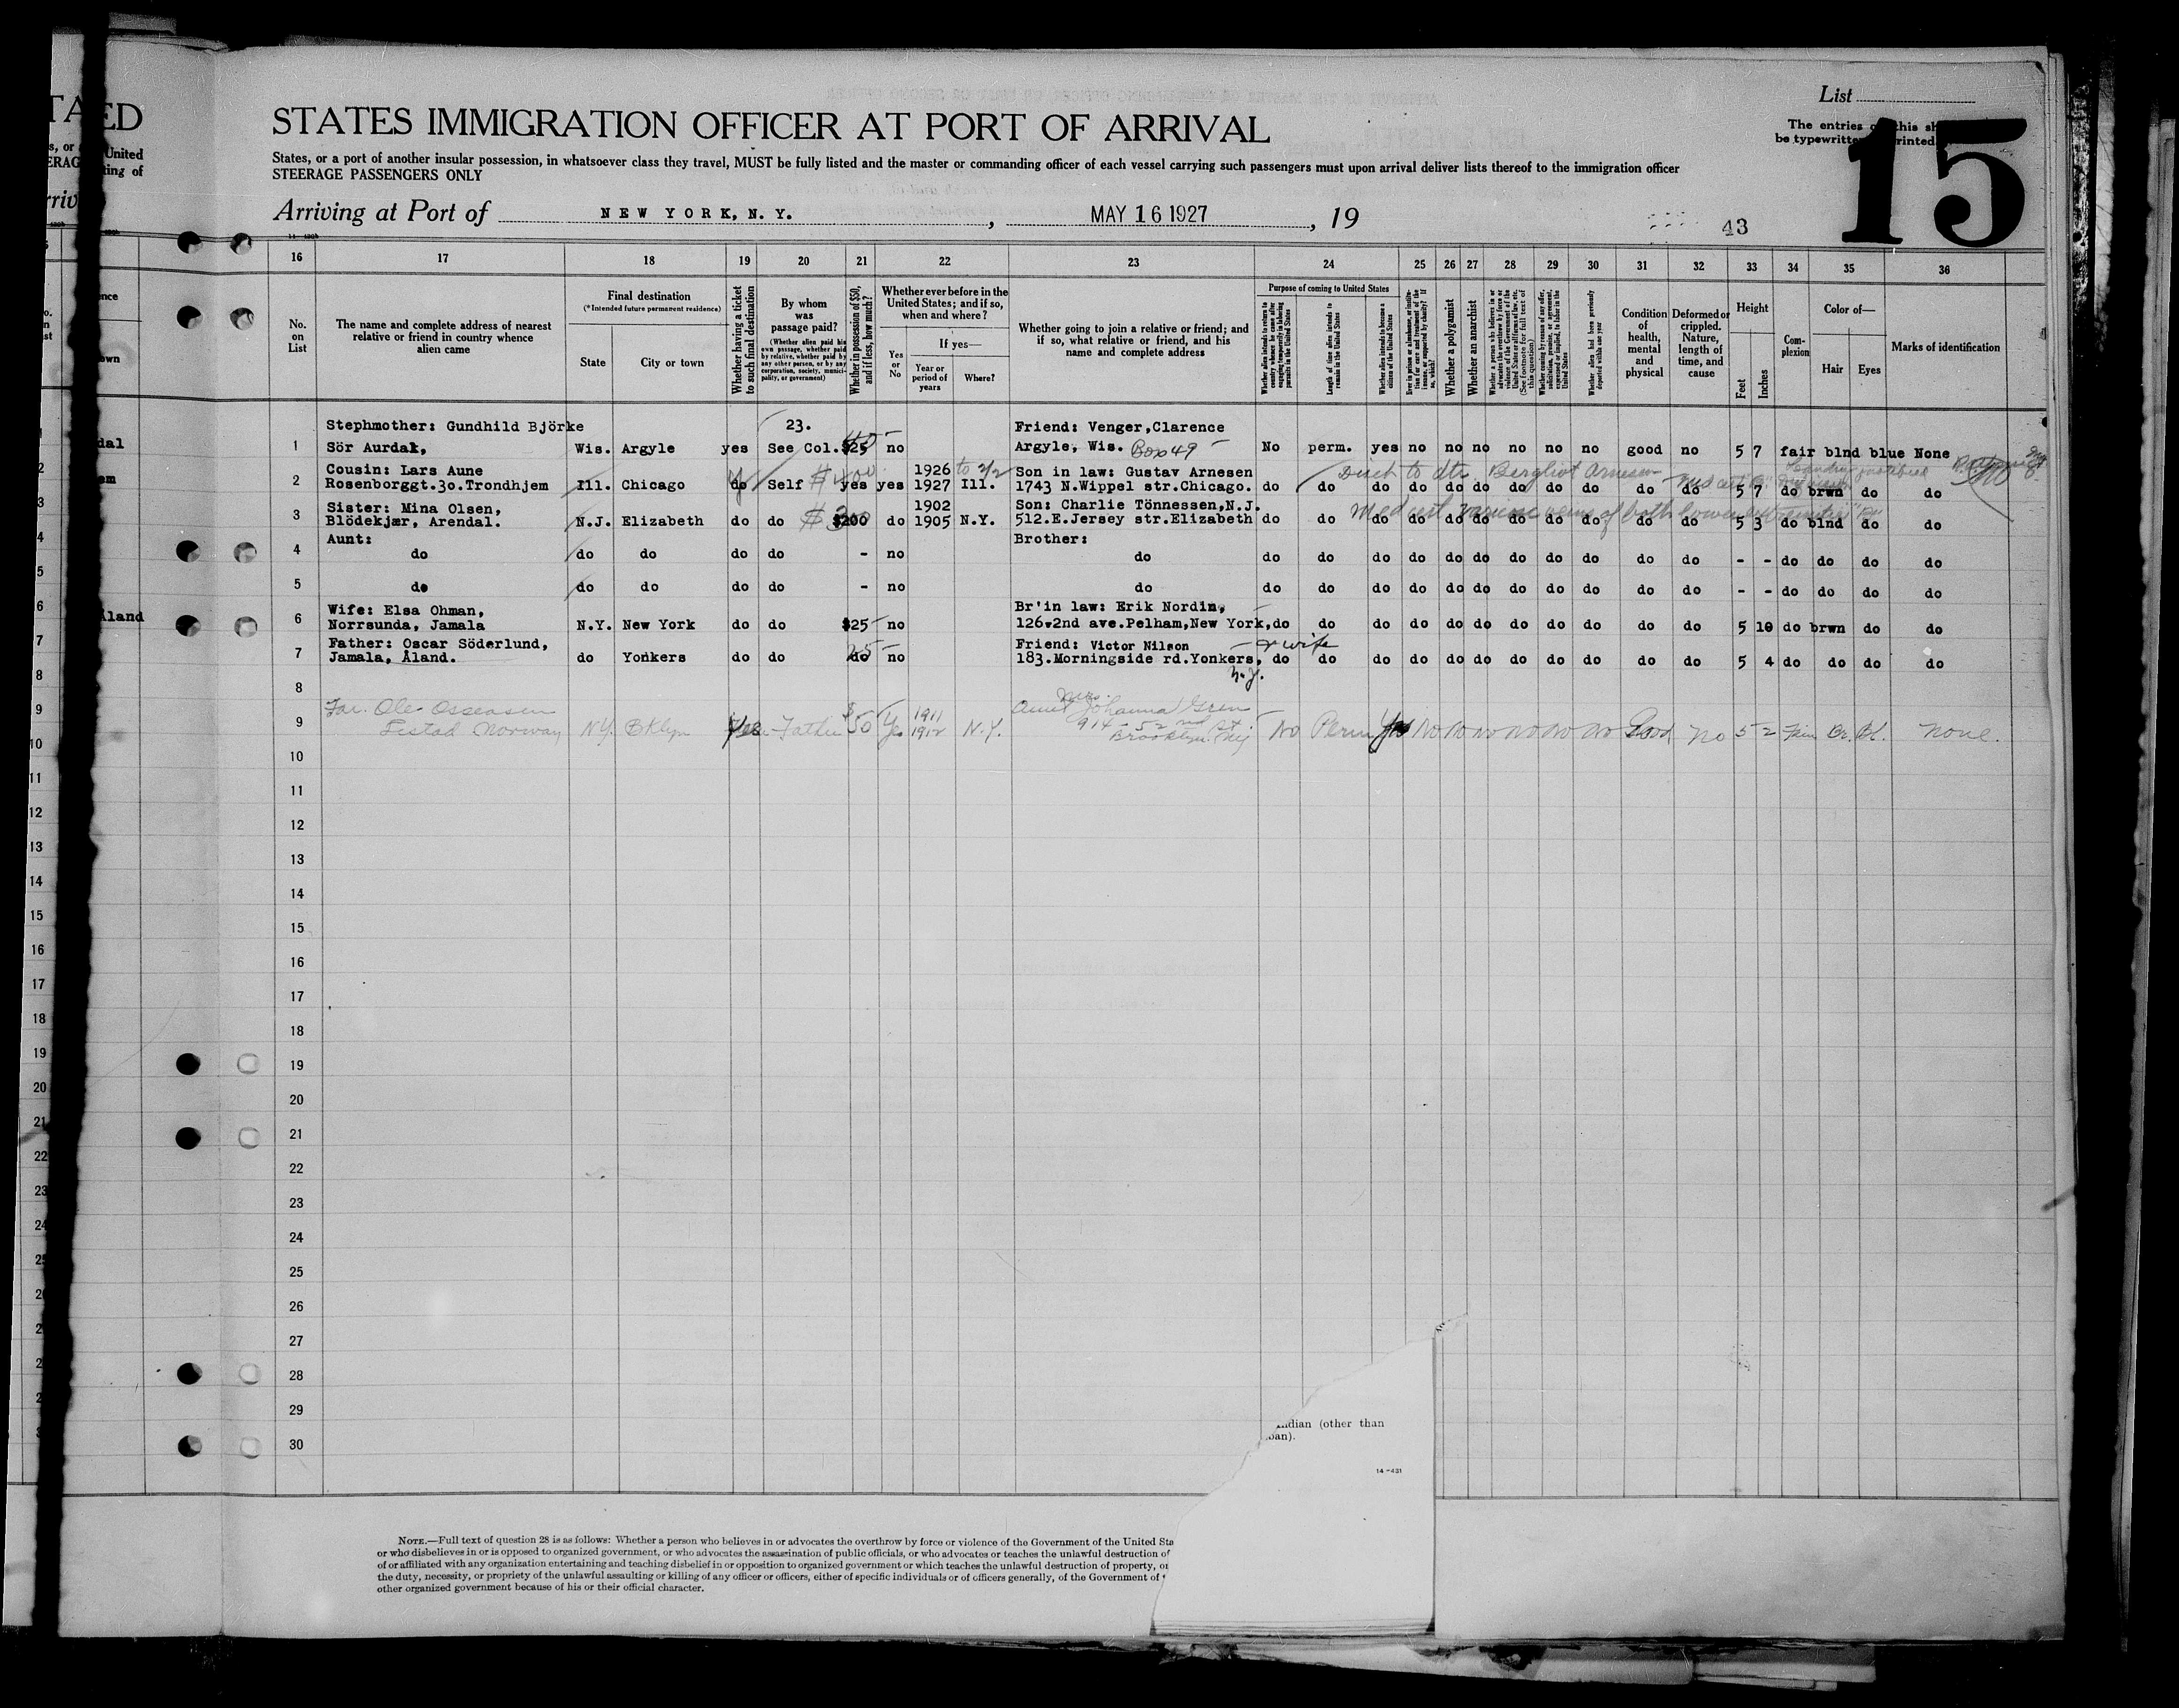 TA
ED
s, or
United
ERAG
ting of
rriv
List
15
The entries this sh
be typewritte rinted
STATES IMMIGRATION OFFICER AT PORT OF ARRIVAL
States, or a port of another insular possession, in whatsoever class they travel, MUST be fully listed and the master or commanding officer of each vessel carrying such passengers must upon arrival deliver lists thereof to the immigration officer
STEERAGE PASSENGERS ONLY
Arriving at Port of NEW YORK, N. Y. , MAY 16 1927 , 19
43
16 17 18 19 20 21 22 23 24 25 26 27 28 29 30 31 32 33 34 35 36
No. on List
The name and complete address of nearest relative or friend in country whence alien came
Final destination
(*Intended future permanent residence)
State
City or town
Whether having a ticket to such final destination
By whom was passage paid?
(Whether alien paid his own passage, whether paid by relative, whether paid by any other person, or by any corporation, society, municipality, or government)
Whether in possession of $50, and if less, how much?
Whether ever before in the United States; and if so, when and where?
Yes or No
If yes—
Year or period of years
Where?
Whether going to join a relative or friend; and if so, what relative or friend, and his name and complete address
Purpose of coming to United States
Whether alien intends to return to country whence he came after engaging temporarily in laboring pursuits in the United States
Length of time alien intends to remain in the United States
Whether alien intends to become a citizen of the United States
Whether a polygamist
Whether an anarchist
(See footnote for full text of this question)
Whether alien had been previously deported within one year
Condition of health, mental and physical
Deformed or crippled. Nature, length of time, and cause
Height
Feet
Inches
Complexion
Color of—
Hair
Eyes
Marks of identification
Stephmother: Gundhild Björke 23. Friend: Venger,Clarence
1 Sör Aurdak, Wis. Argyle yes See Col. $25 40 no Argyle, Wis. Box 49 No perm. yes no no no no no no good no 5 7 fair blnd blue None
Cousin: Lars Aune 1926 to 2/2 Son in law: Gustav Arnesen to dtr. Bergliot Arnesen
2 Rosenborggt.3o.Trondhjem Ill. Chicago do Self yes yes 1927 Ill. 1743 N.Wippel str.Chicago. do do do do do do do do do do do 5 7 do brwn do do
Sister: Mina Olsen, 1902 Son: Charlie Tönnessen,N.J. Med cert varicose veins of both lower extremities
3 Blödekjær, Arendal. N.J. Elizabeth do do $200 do 1905 N.Y. 512.E.Jersey str.Elizabeth do do do do do do do do do do do 5 3 do blnd do do
Aunt: Brother:
4 do do do do do - no do do do do do do do do do do do do - - do do do do
5 do do do do do - no do do do do do do do do do do do do - - do do do do
Wife: Elsa Ohman, Br'in law: Erik Nordin,
6 Norrsunda, Jamala N.Y. New York do do $25 no 126.2nd ave.Pelham,New York, do do do do do do do do do do do 5 10 do brwn do do
Father: Oscar Söderlund, Friend: Victor Nilson & wife
7 Jamala, Åland. do Yonkers do do do 25 no 183.Morningside rd.Yonkers, do do do do do do do do do do do 5 4 do do do do
N.Y.
8
Far. Ole Osseasen $ 1911 Aunt Mrs. Johanna Gren
9 Norway N.Y. BKlyn Yes Father 50 Yes 1912 N.Y. 914 - 52nd St. No Perm Yes No No No No No No Good No 5 2 Fair Br. Bl. None.
Brooklyn NY
10
11
12
13
14
15
16
17
18
19
20
21
22
23
24
25
26
27
28
29
30
ndian (other than
ban).
14-431
NOTE.—Full text of question 28 is as follows: Whether a person who believes in or advocates the overthrow by force or violence of the Government of the United Sta
or who disbelieves in or is opposed to organized government, or who advocates the assassination of public officials, or who advocates or teaches the unlawful destruction of
of or affiliated with any organization entertaining and teaching disbelief in or opposition to organized government or which teaches the unlawful destruction of property, or
the duty, necessity, or propriety of the unlawful assaulting or killing of any officer or officers, either of specific individuals or of officers generally, of the Government of
other organized government because of his or their official character.